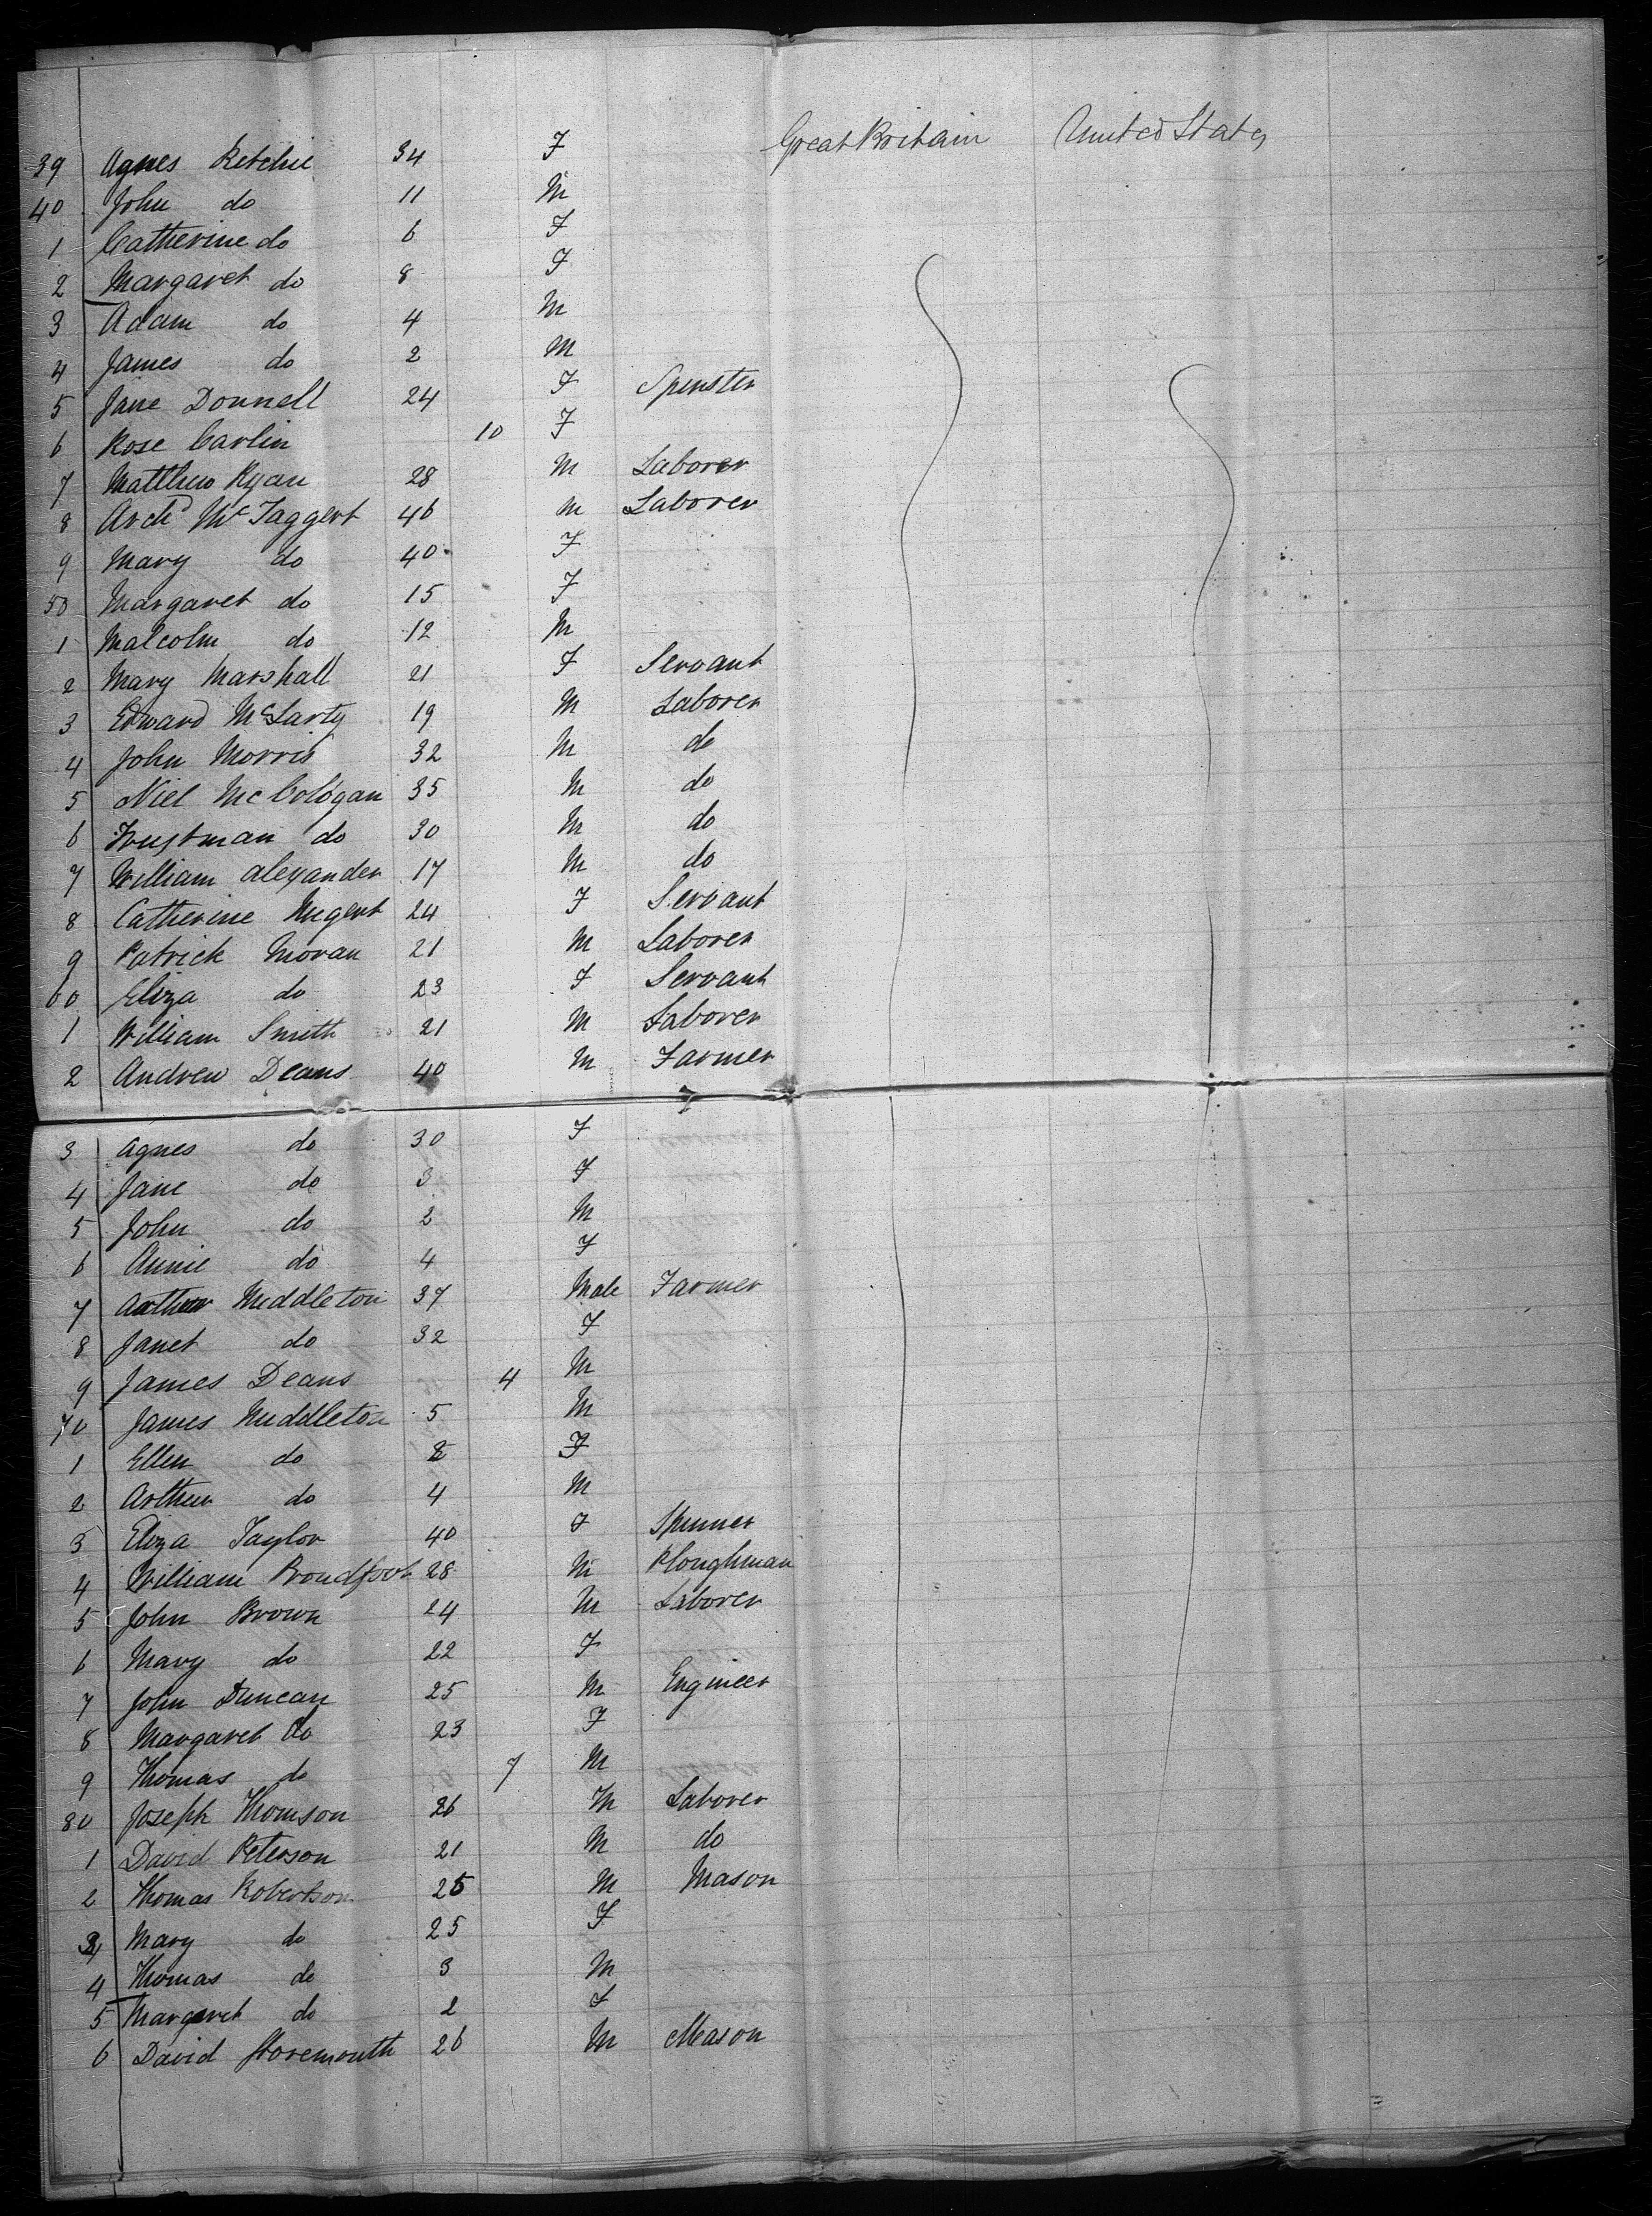 39 Agnes Retchie 34 F Great Britain United States
40 John do 11 M
1 Catherine do 6 F
2 Margaret do 8 F
3 Adam do 4 M
4 James do 2 M
5 Jane Donnell 24 F Spinster
6 Rose Carlin 10 F
7 Matthew Ryan 28 M Laborer
8 Archd McTaggert 46 M Laborer
9 Mary do 40 F
50 Margaret do 15 F
1 Malcolm do 12 M
2 Mary Marshall 21 F Servant
3 Edward McLarty 19 M Laborer
4 John Morris 32 M do
5 Niel McCologan 35 M do
6 do 30 M do
7 William Alexander 17 M do
8 Catherine Nugent 24 F Servant
9 Patrick Moran 21 M Laborer
60 Eliza do 23 F Servant
1 William Smith 21 M Laborer
2 Andrew Deans 40 M Farmer
3 Agnes do 30 F
4 Jane do 3 F
5 John do 2 M
6 Annie do 4 F
7 Arthur Middleton 37 Male Farmer
8 Janet do 32 F
9 James Deans 4 M
70 James Middleton 5 M
1 Ellen do 8 F
2 Arthur do 4 M
3 Eliza Taylor 40 F Spinner
4 William Proudfoot 28 M Ploughman
5 John Brown 24 M Laborer
6 Mary do 22 F
7 John Duncan 25 M Engineer
8 Margaret do 23 F
9 Thomas do 7 M
80 Joseph Thomson 26 M Laborer
1 David Peterson 21 M do
2 Thomas Robertson 25 M Mason
3 Mary do 25 F
4 Thomas do 3 M
5 Margaret do 2 F
6 David Storemouth 26 M Mason